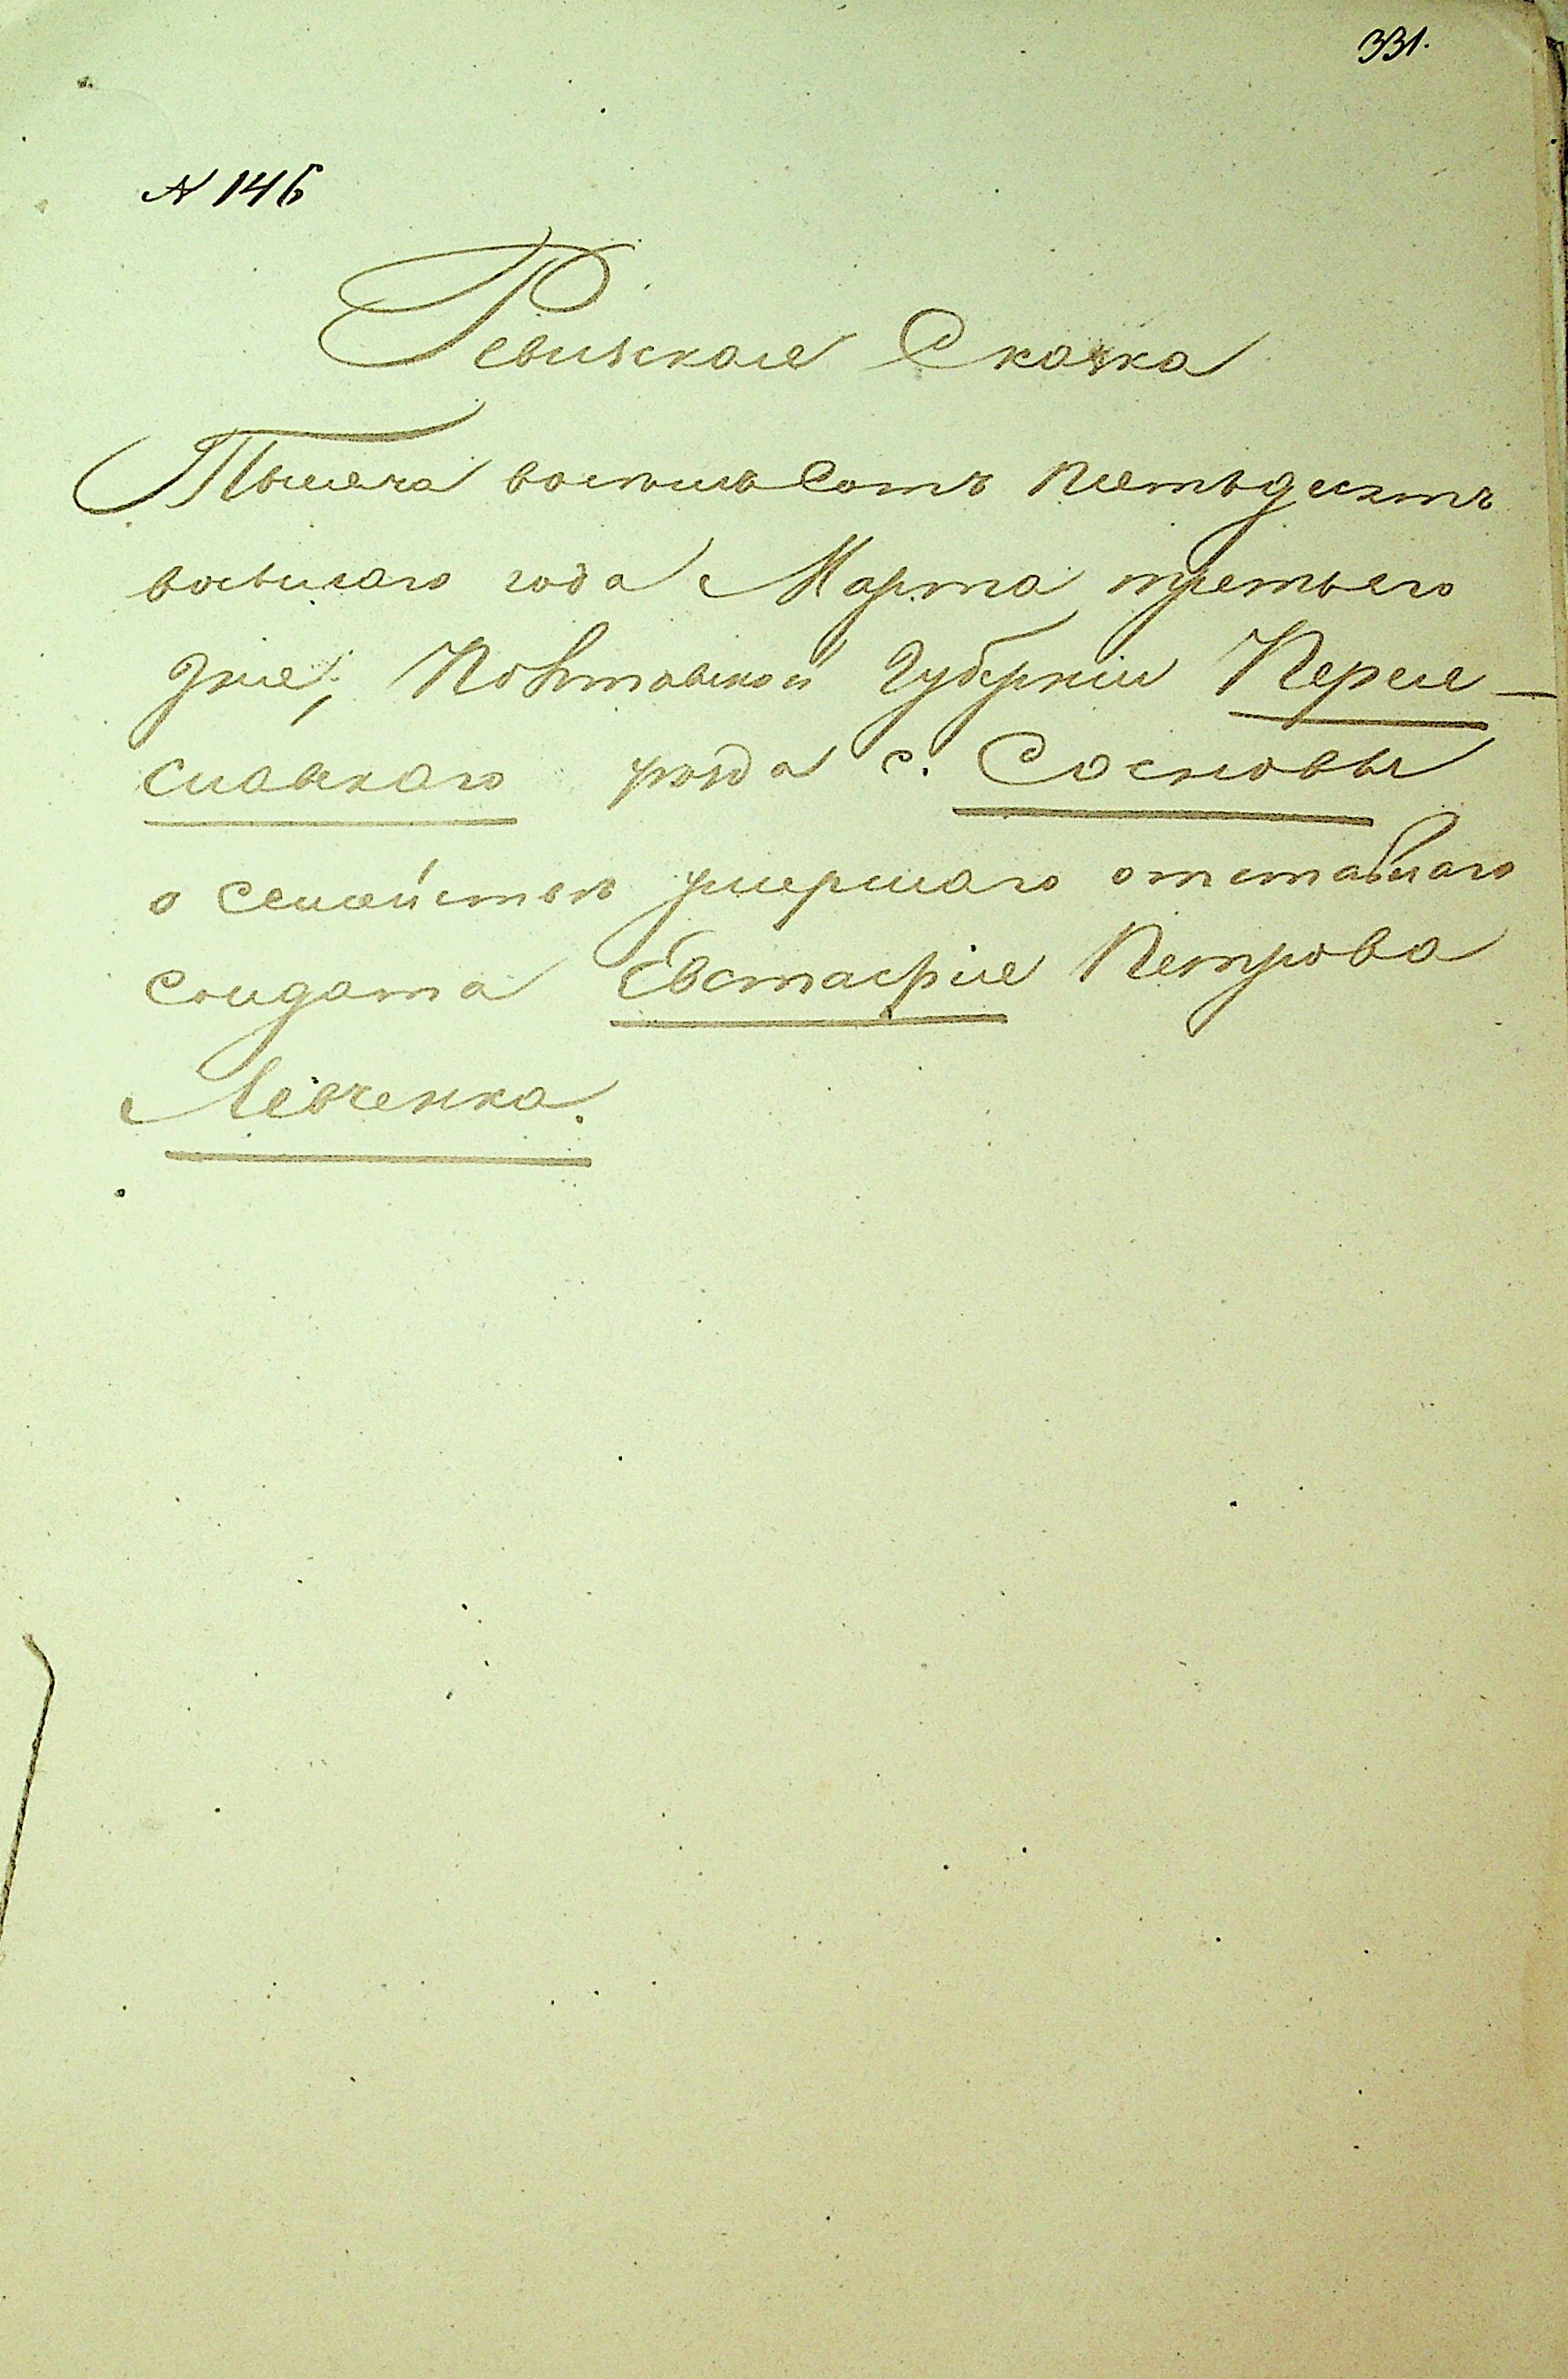 331.
№ 146
Ревизская Сказка
Тысяча восемьсотъ пятьдесятъ
восьмаго года Марта третьяго
дня, Полтавской Губерніи Перея-
славскаго уезда с. Сосновы
о семействѣ умершаго отставнаго
солдата Евстафія Петрова
Левченка.